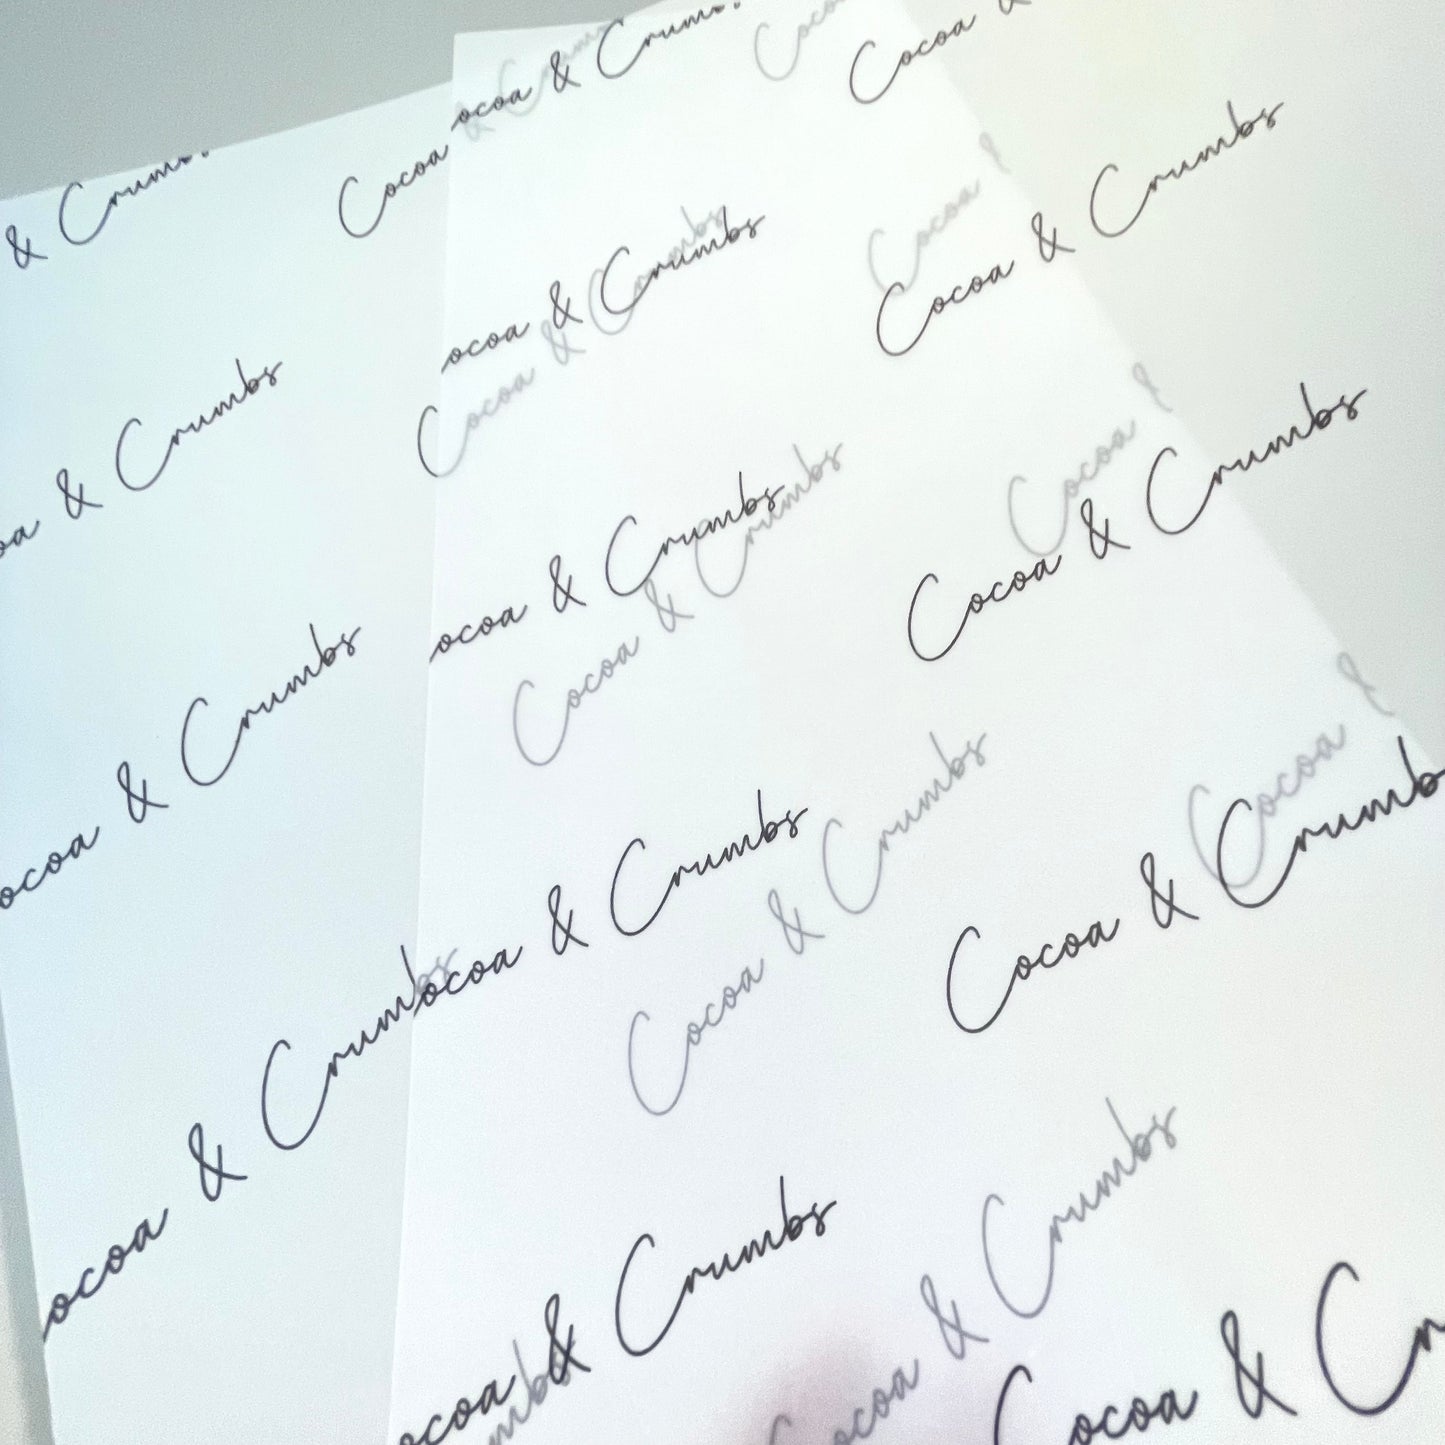 ocoa & Crum
Cocoa
Cocoa &
& Crum
Cocoa
Cocoa & Crumbs
ocoa & Crumbs
Cocoa &
Cocoa & Crumbs
oa & Crumbs
Cocoa & Crumbs
ocoa & Crumbs
Cocoa &
Cocoa & Crumbs
ocoa & Crumbs
Cocoa & Crumbs
Cocoa &
Cocoa & Crumb
ocoa & Crumbs
Cocoa & Crumbs
ocoa & Crumbs
ocoa & Crumbs
Cocoa & Crumbs
Cocoa & Cr
mbs